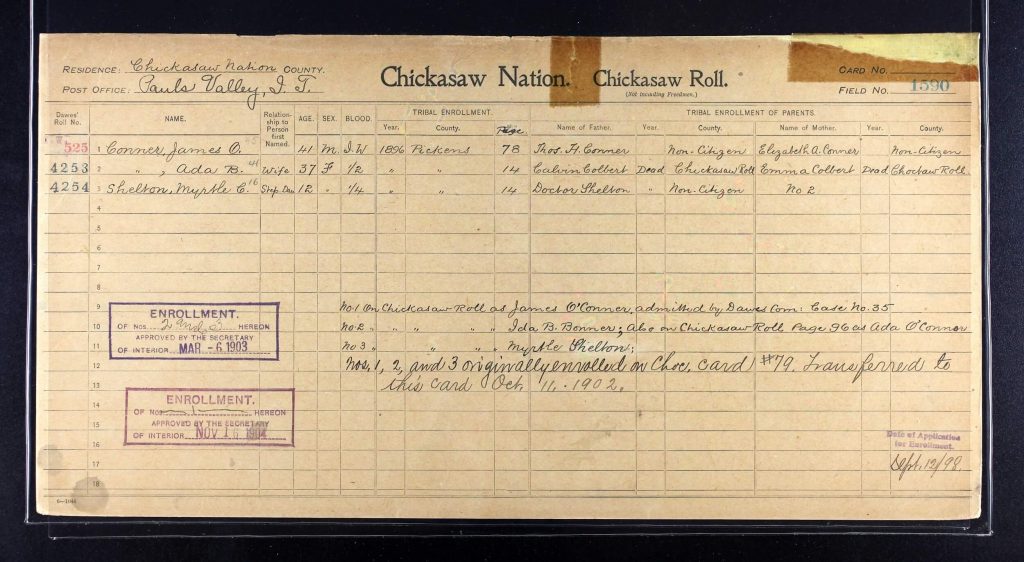 RESIDENCE: Chickasaw Nation COUNTY.
POST OFFICE: Pauls Valley, I. T.
Chickasaw Nation. Chickasaw Roll.
(Not Including Freedmen.)
CARD NO.
FIELD NO. 1590
Dawes' Roll No. NAME. Relationship to Person first Named. AGE. SEX. BLOOD. TRIBAL ENROLLMENT. Year. County. Page. TRIBAL ENROLLMENT OF PARENTS. Name of Father. Year. County. Name of Mother. Year. County.
525 1 Conner, James O. 41 M. I.W 1896 Pickens 78 Thos. H. Conner Non-Citizen Elizabeth A. Conner Non-Citizen
4253 2 " , Ada B. 41 Wife 37 F 1/2 " " 14 Calvin Colbert Dead Chickasaw Roll Emma Colbert Dead Choctaw Roll
4254 3 Shelton, Myrtle C. 16 Step Dau 12 " 1/4 " " 14 Doctor Shelton " Non-Citizen No 2
4
5
6
7
8
9 No. 1 On Chickasaw Roll as James O'Conner, admitted by Dawes Com: Case No. 35
10 No. 2 " " " " Ida B. Bonner; Also on Chickasaw Roll Page 96 as Ada O'Connor
11 No 3 " " " " Myrtle Shelton;
12 Nos. 1, 2, and 3 originally enrolled on Choc. Card #79. Transferred to
13 this card Oct 11, 1902.
14
15
16
17
18
ENROLLMENT.
OF NOS. 2 and 3 HEREON
APPROVED BY THE SECRETARY
OF INTERIOR MAR -6 1903
ENROLLMENT.
OF NOS. 1 HEREON
APPROVED BY THE SECRETARY
OF INTERIOR NOV 16 1904
Date of Application
for Enrollment.
Sept. 12/98.